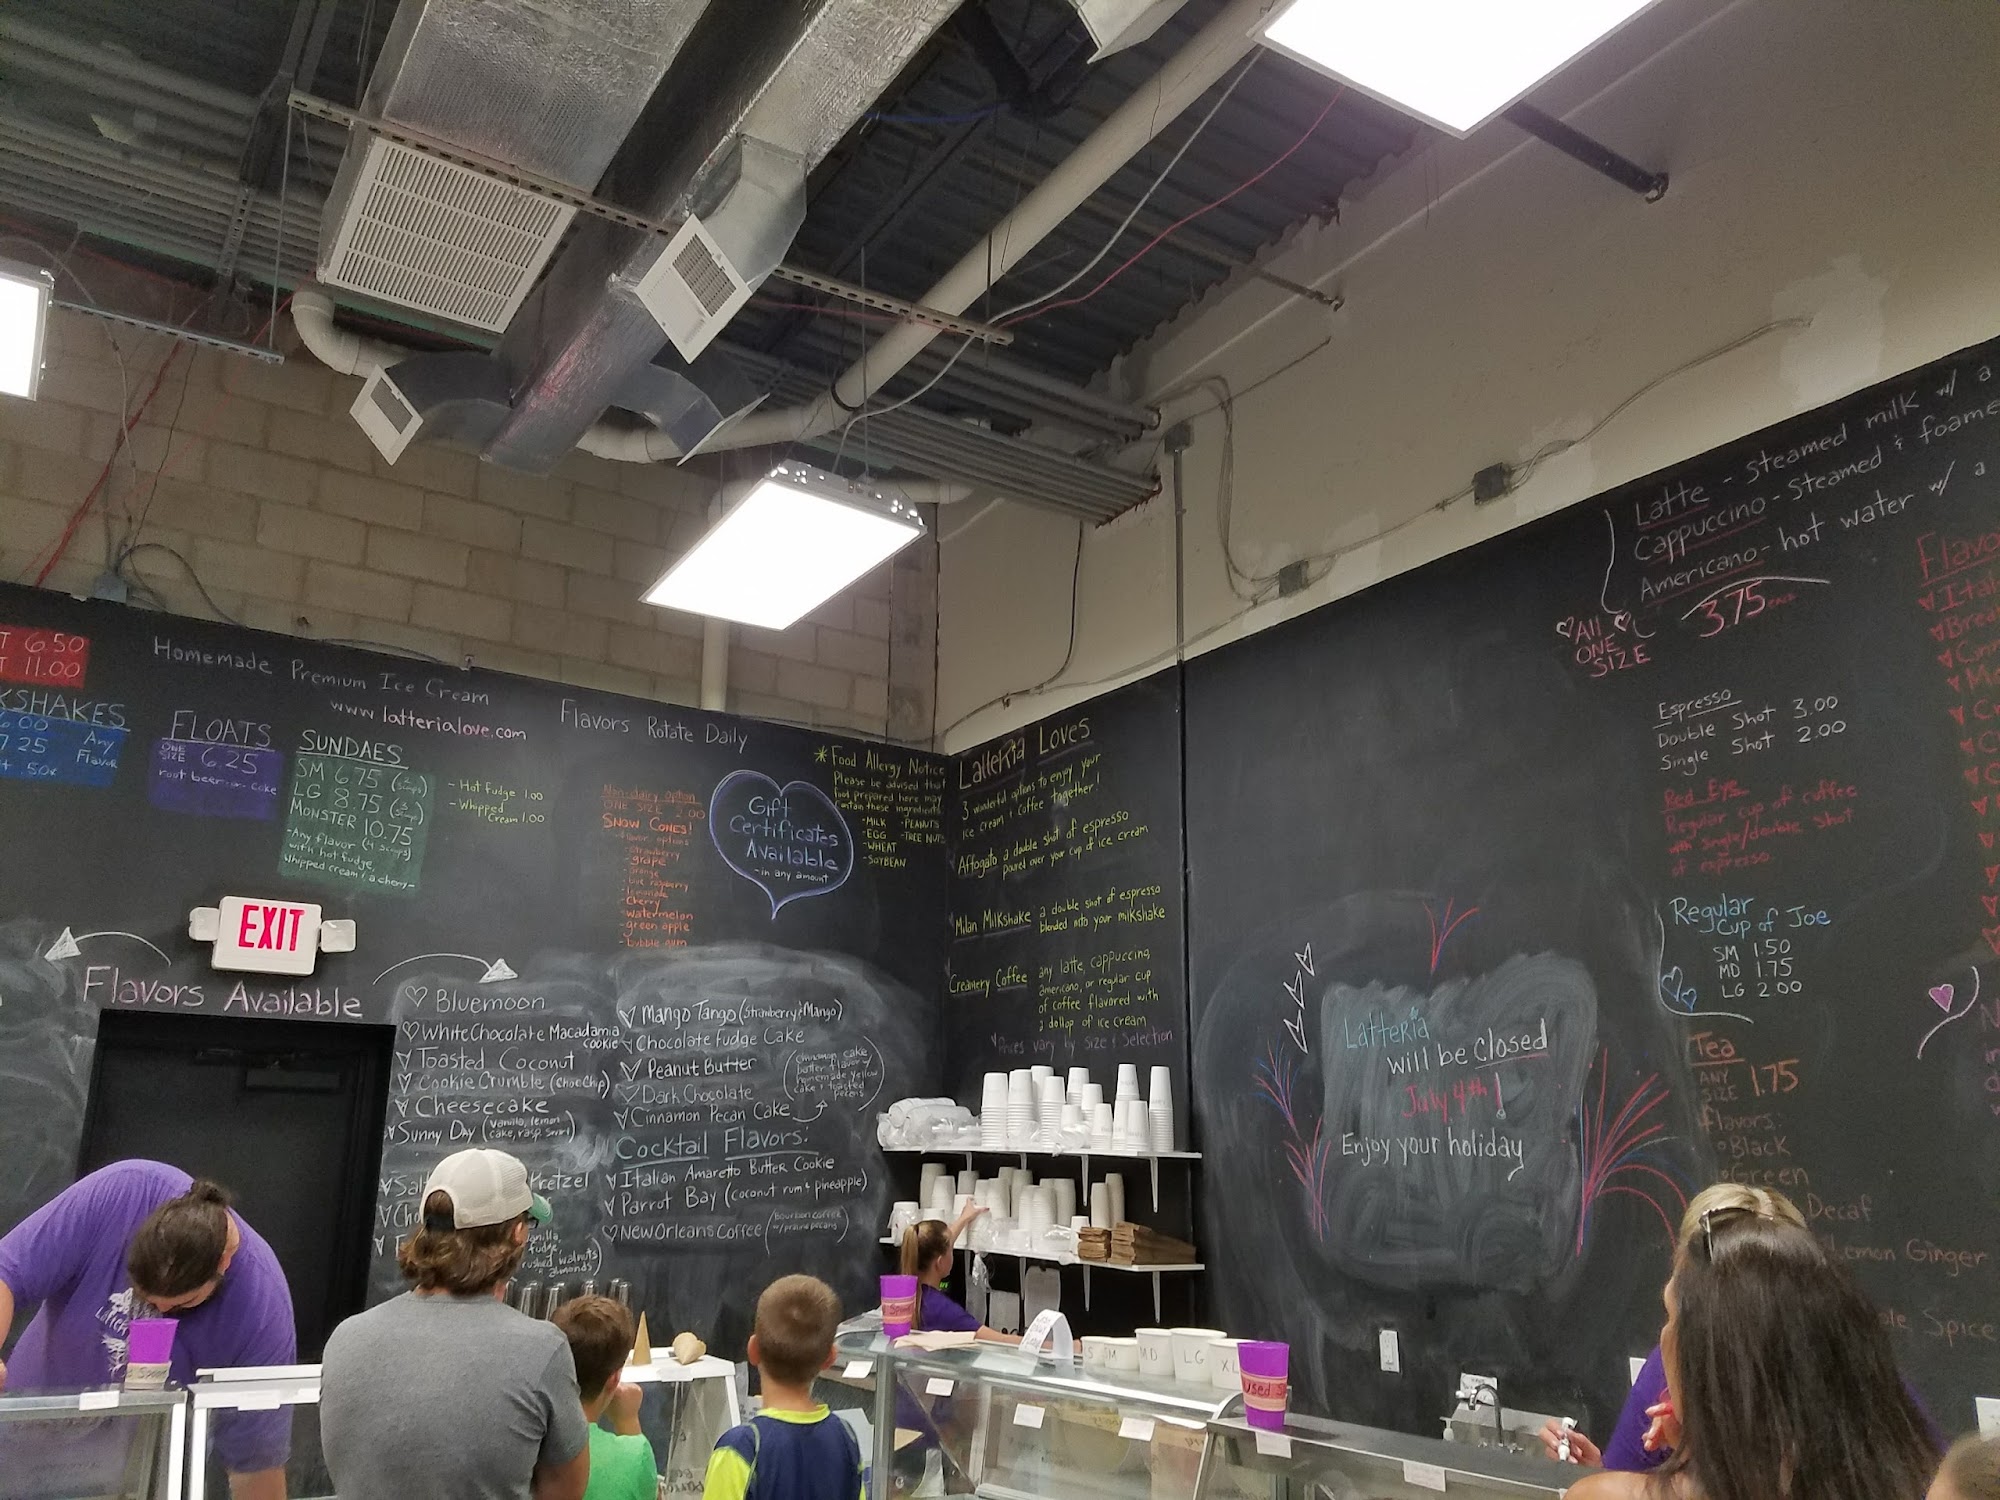 T 6.50
T 11.00
KSHAKES
6.00 Any
7.25 Flavor
.50¢
Homemade Premium Ice Cream
www.latterialove.com
Flavors Rotate Daily
FLOATS
ONE SIZE 6.25
root beer or coke
SUNDAES
SM 6.75 (2 scoops)
LG 8.75 (3 scoops)
MONSTER 10.75
-Any flavor (4 scoops)
with hot fudge,
whipped cream & a cherry-
- Hot Fudge 1.00
- Whipped
Cream 1.00
Non-dairy option
ONE SIZE 2.00
SNOW CONES!
-flavor options
-strawberry
-grape
-orange
-blue raspberry
-lemonade
-cherry
-watermelon
-green apple
-bubble gum
Gift
Certificates
Available
-in any amount
*Food Allergy Notice
Please be advised that
food prepared here may
contain these ingredients:
-MILK -PEANUTS
-EGG -TREE NUTS
-WHEAT
-SOYBEAN
EXIT
Flavors Available
♡ Bluemoon
♡ White Chocolate Macadamia
cookie
Toasted Coconut
Cookie Crumble (Choc Chip)
Cheesecake
Sunny Day (vanilla, lemon
cake, rasp. swirl)
Salt Pretzel
Cho
fudge,
walnuts
& almonds)
Mango Tango (Strawberry & Mango)
Chocolate Fudge Cake
Peanut Butter
Dark Chocolate
Cinnamon Pecan Cake
(cinnamon cake
batter flavor w/
homemade yellow
cake & toasted
pecans)
Cocktail Flavors:
Italian Amaretto Butter Cookie
Parrot Bay (coconut rum & pineapple)
♡ New Orleans Coffee (bourbon coffee
w/ praline pecans)
Latteria Loves
3 wonderful options to enjoy your
ice cream & coffee together!
Affogato a double shot of espresso
poured over your cup of ice cream
Milan Milkshake a double shot of espresso
blended into your milkshake
Creamery Coffee any latte, cappuccino,
americano, or regular cup
of coffee flavored with
a dollop of ice cream
Prices vary by Size & Selection
Latteria
will be closed
July 4th!
Enjoy your holiday
Latte - Steamed milk w/ a
Cappuccino - Steamed & foame
Americano - hot water w/ a
♡ All ♡
ONE
SIZE
3.75
Espresso
Double Shot 3.00
Single Shot 2.00
Red Eye
Regular cup of coffee
with single/double shot
of espresso.
Regular
Cup of Joe
SM 1.50
MD 1.75
LG 2.00
Tea
ANY
SIZE 1.75
flavors:
Black
Green
Decaf
Lemon Ginger
Spice
Flavo
Ital
Brea
SM
MD
LG
XL